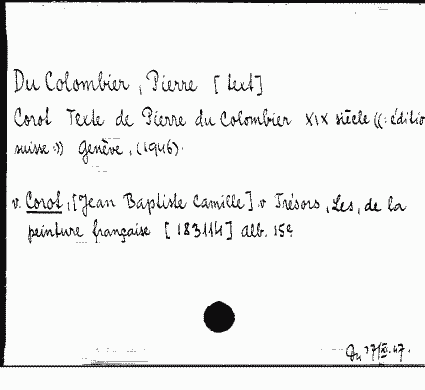 Du Colombier, Pierre [text]
Corot Texte de Pierre du Colombier XIX siècle ((: éditio
suisse:)) Genève, (1946).
v. Corot, [Jean Baptiste Camille] v Trésors, Les, de la
peinture française [183114] alb. 15e